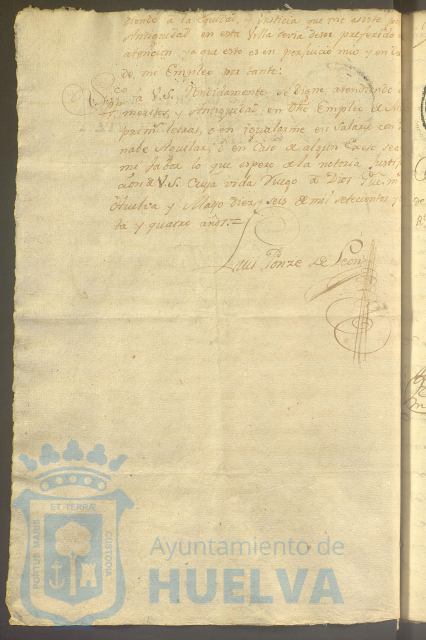 diendo a la equidad, y Justicia que me asiste por
Antiguedad en esta Villa seria deser preferido
atencion ya que esto es en perjuicio mio y en
de mi Empleo por tanto:
Sup.co a V.S. Rendidamente se digne atendiendo
meritos, y Antiguedad en dho Empleo de
prim.s letras, o en igualarme en Salario con
nabe Aguilar, o en Caso de algun
me saber lo que espero de la notoria Justi
cion de V.S. Cuya vida Ruego a Dios Gue. m.s
Huelva y Mayo diez y seis de mil setecientos
ta y quatro años.=
Luis Ponze de Leon
PORTUS MARIS ET TERRÆ CUSTODIA
Ayuntamiento de
HUELVA